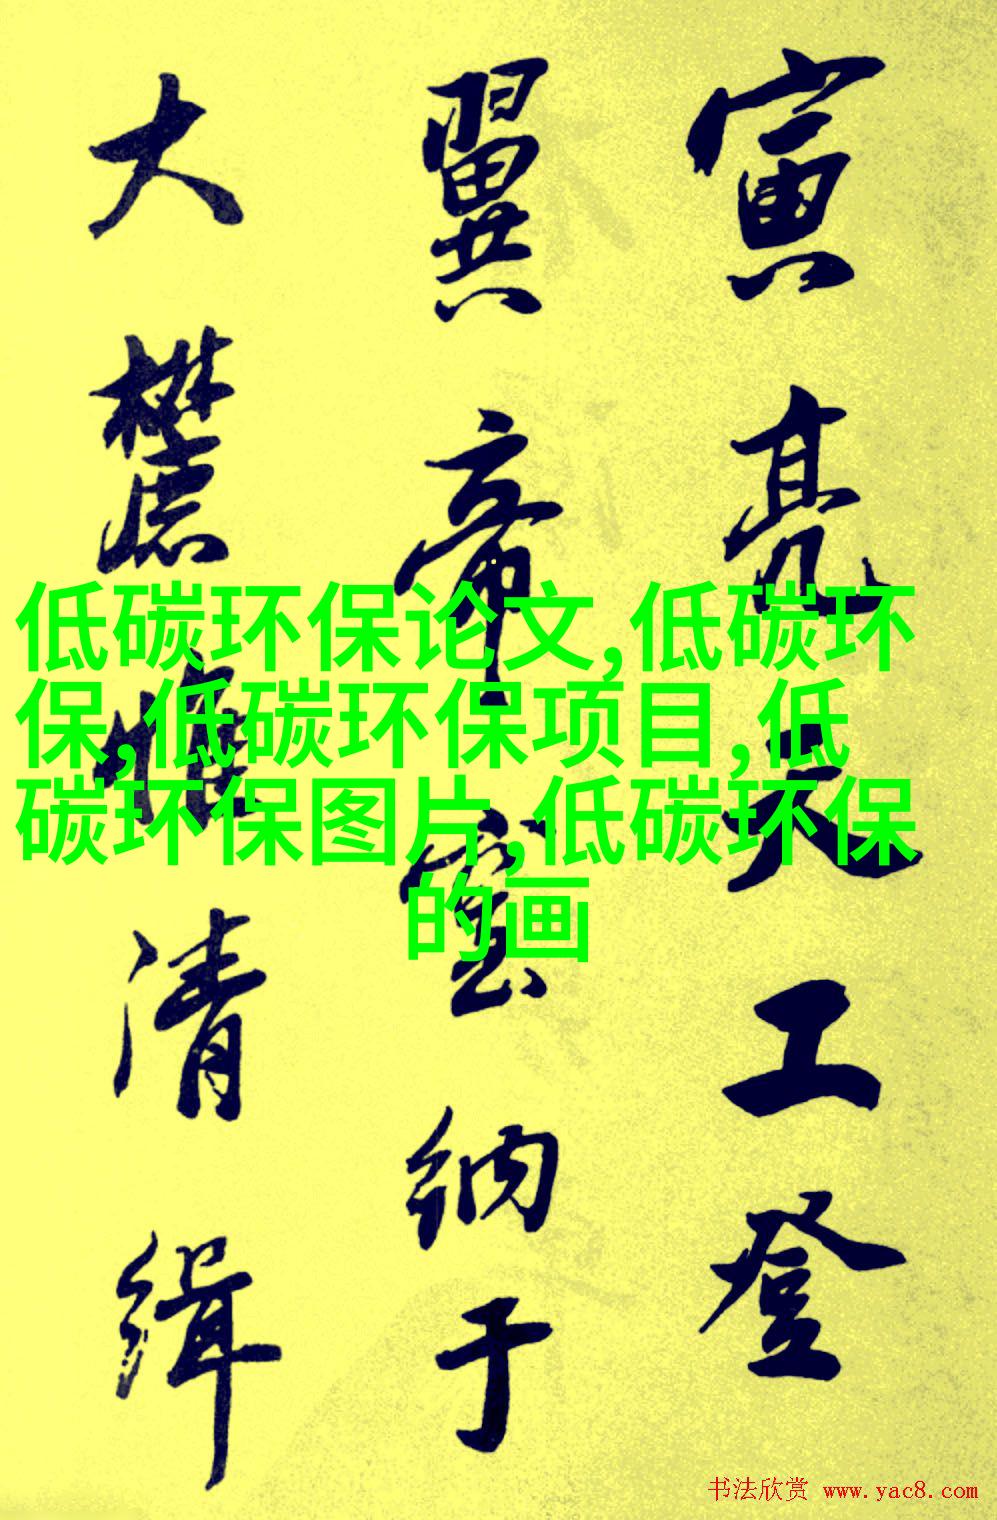 寅亮天工登
翼帝室纳于
大麓惟清缉
低碳环保论文,低碳环
保,低碳环保项目,低
碳环保图片,低碳环保
的画
书法欣赏 www.yac8.com